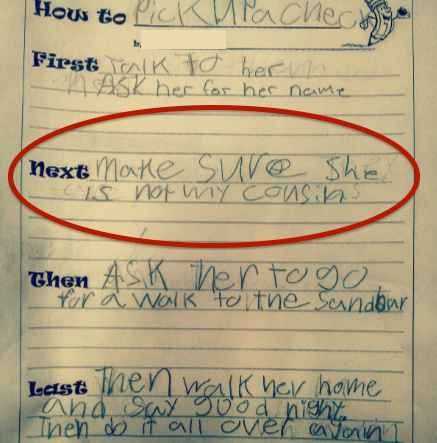 How to PickUpachec
by
First Talk to her
ASK her for her name
Next make sure she
is not my cousin
Then ASK her to go
for a walk to the sandbar
Last Then walk her home
and say good night.
Then do it all over again!